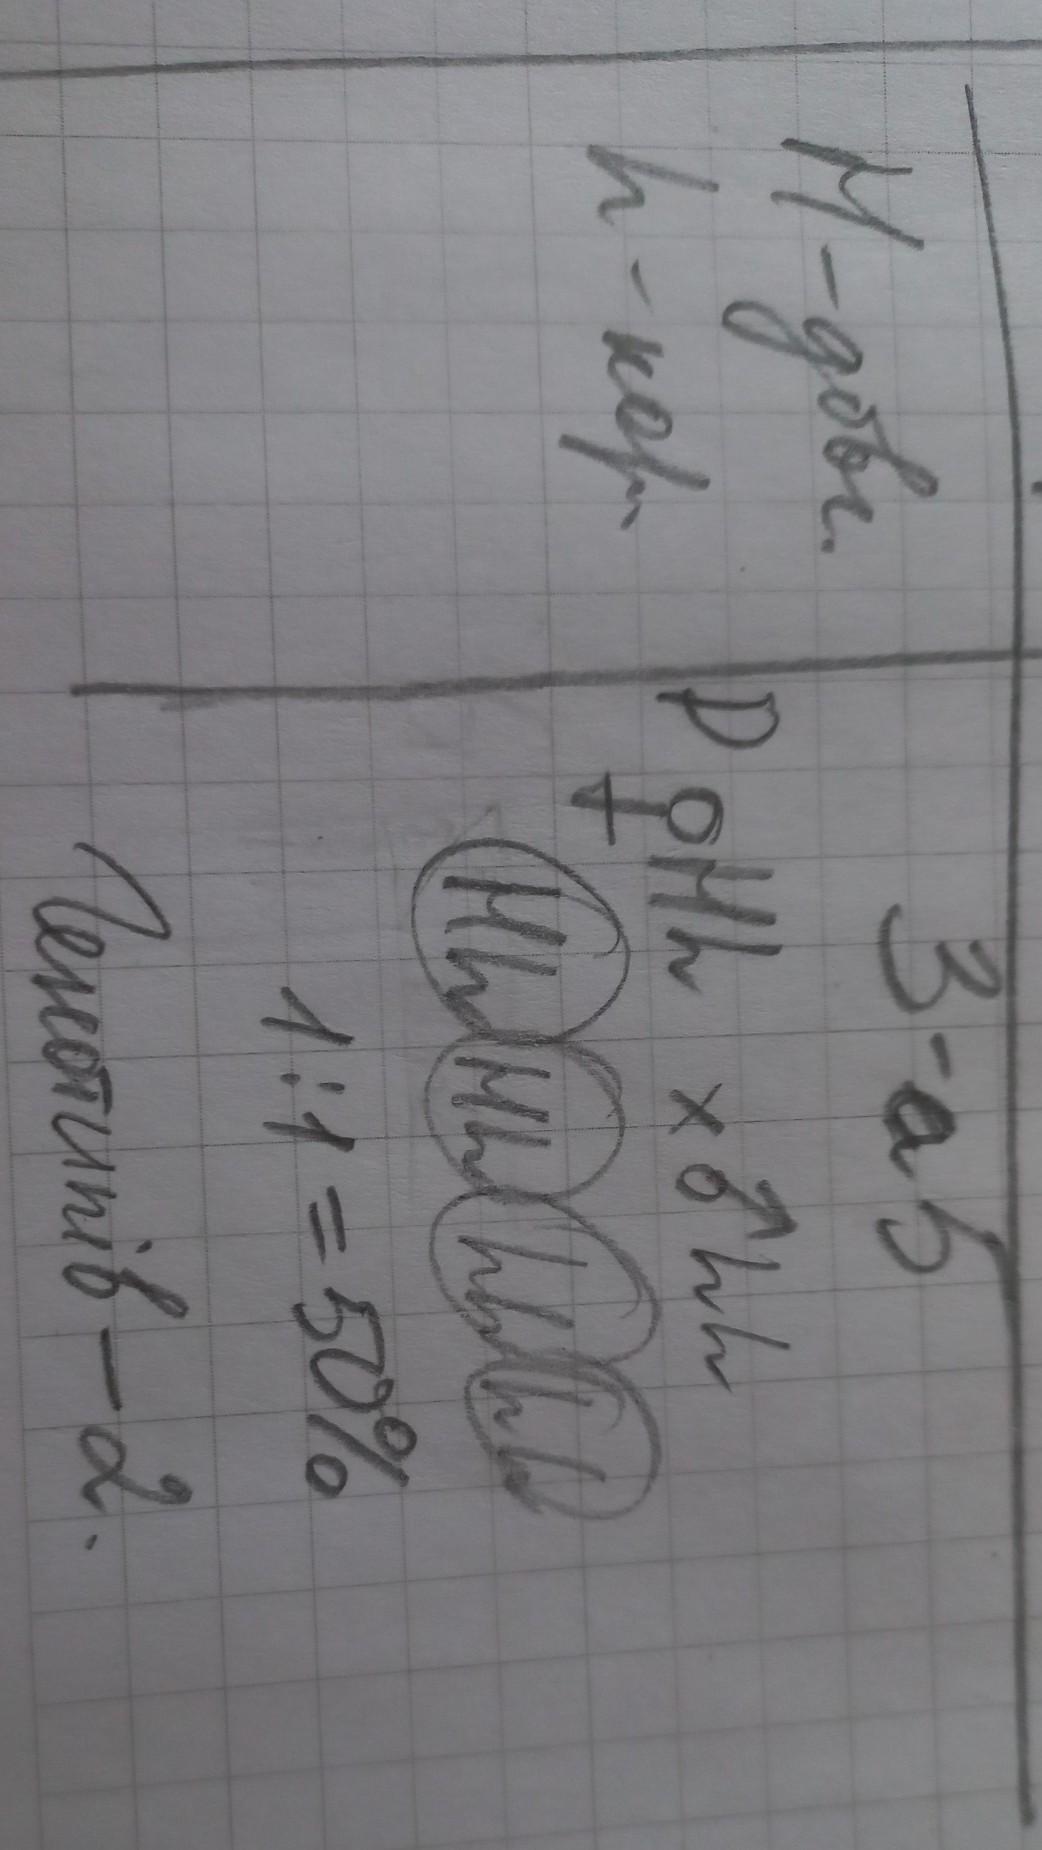 H - довг.
h - кор.
З-аб
P ♀Hh × ♂hh
Hh Hh hh hh
1:1 = 50%
Генотипів - 2.